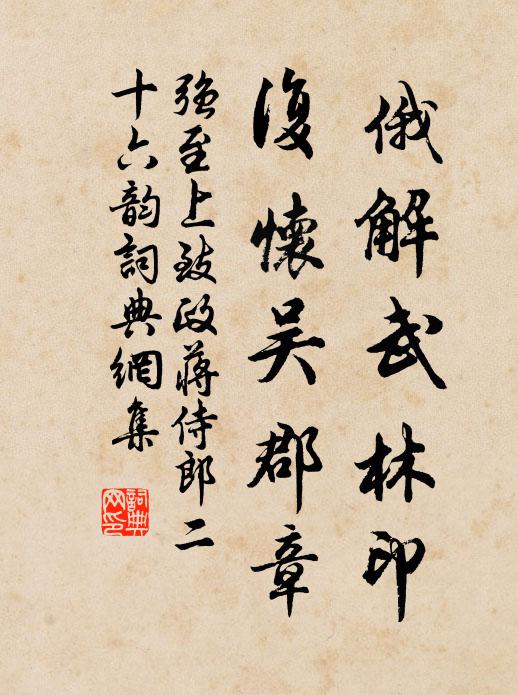 俄解武林印
復懷吴郡章
強至上致政蔣侍郎二
十六韵詞典網集
詞典网印